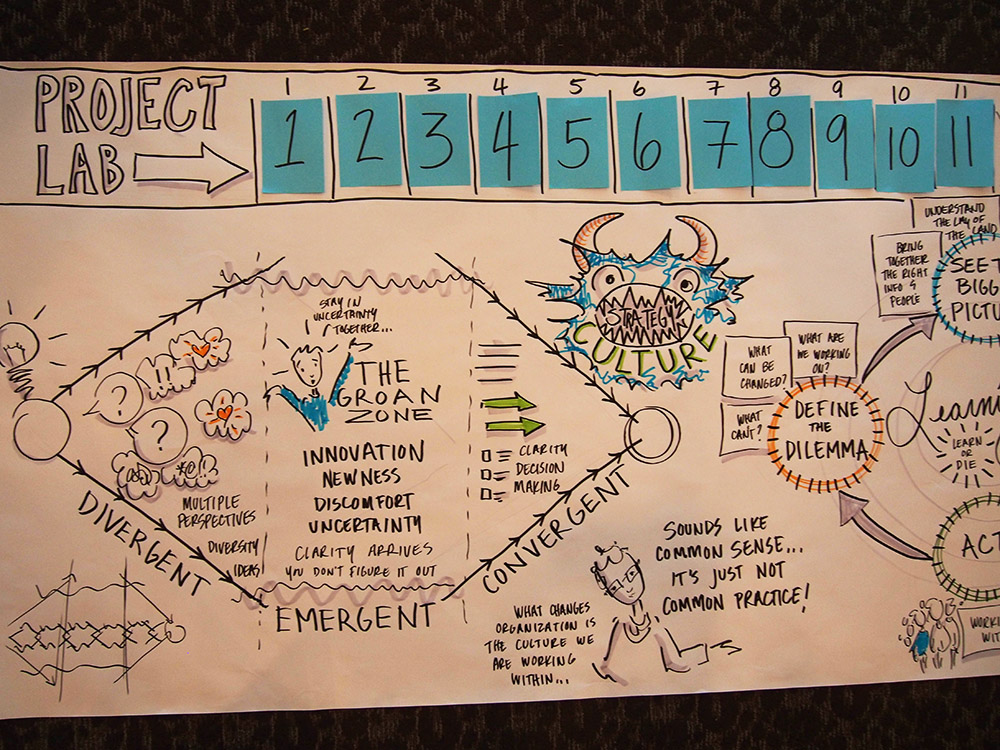 PROJECT
LAB
1 2 3 4 5 6 7 8 9 10 11
1 2 3 4 5 6 7 8 9 10 11
?
!!!
?
*@!!
MULTIPLE
PERSPECTIVES
DIVERSITY
IDEAS
DIVERGENT
STAY IN
UNCERTAINTY
TOGETHER...
THE
GROAN
ZONE
INNOVATION
NEWNESS
DISCOMFORT
UNCERTAINTY
CLARITY ARRIVES
YOU DON'T FIGURE IT OUT
EMERGENT
CLARITY
DECISION
MAKING
CONVERGENT
STRATEGY
CULTURE
WHAT CHANGES
ORGANIZATION IS
THE CULTURE WE
ARE WORKING
WITHIN...
SOUNDS LIKE
COMMON SENSE...
IT'S JUST NOT
COMMON PRACTICE!
WHAT
CAN BE
CHANGED?
WHAT ARE
WE WORKING
ON?
WHAT
CAN'T?
DEFINE
THE
DILEMMA
BRING
TOGETHER
THE RIGHT
INFO &
PEOPLE
UNDERSTAND
THE LAY OF
THE LAND
SEE T
BIGG
PICTU
Learn
LEARN
OR
DIE
ACT
WORKI
WIT